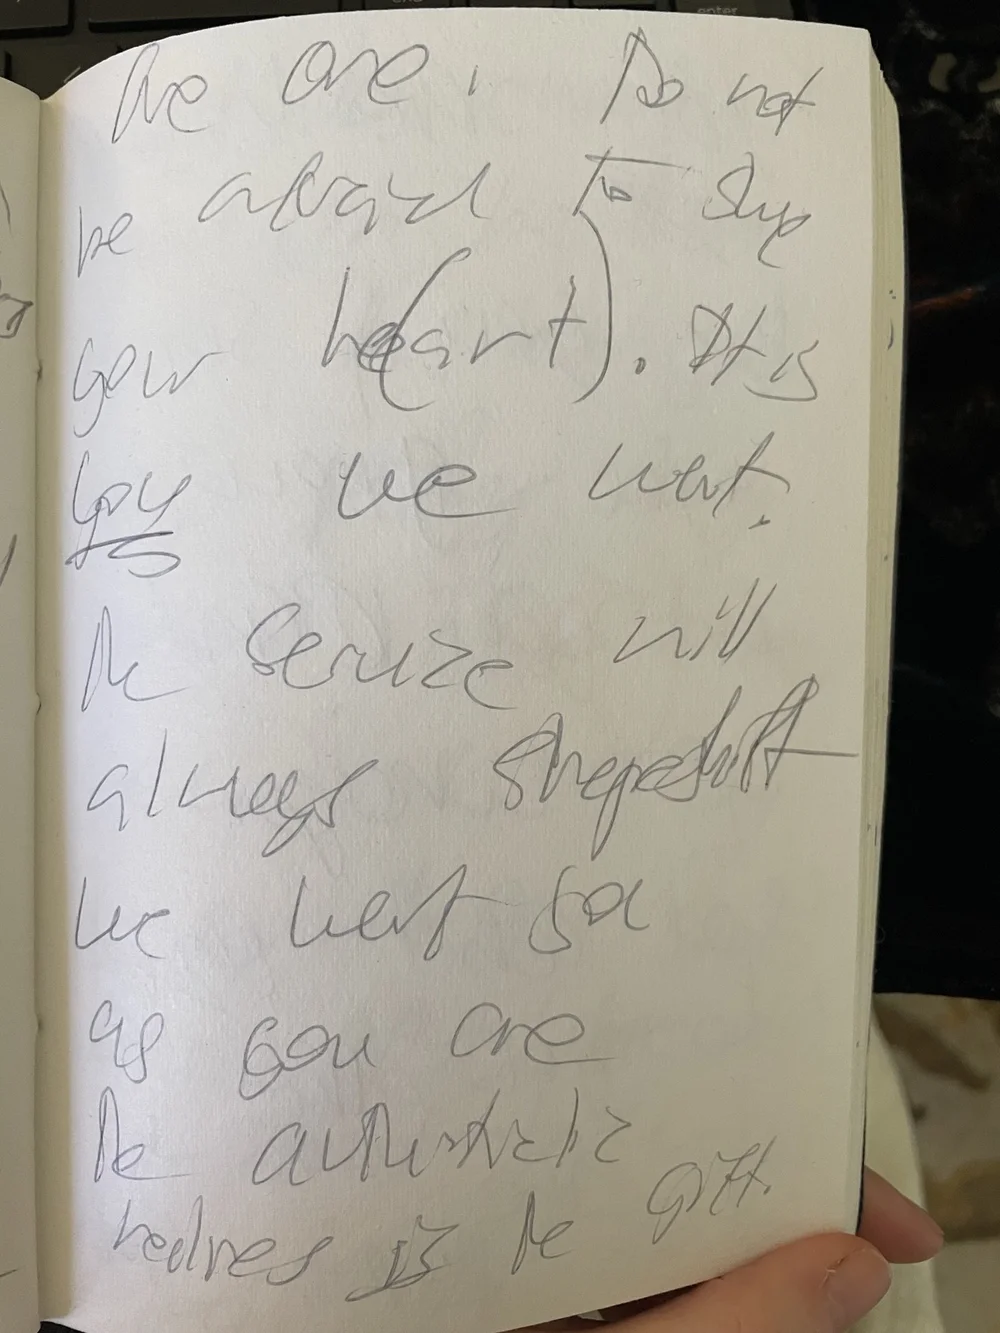 We are. Do not
be afraid to shape
your he(art). It is
you we want.
The service will
always shapeshift
We want you
as you are
The authentic
realness is the gift.